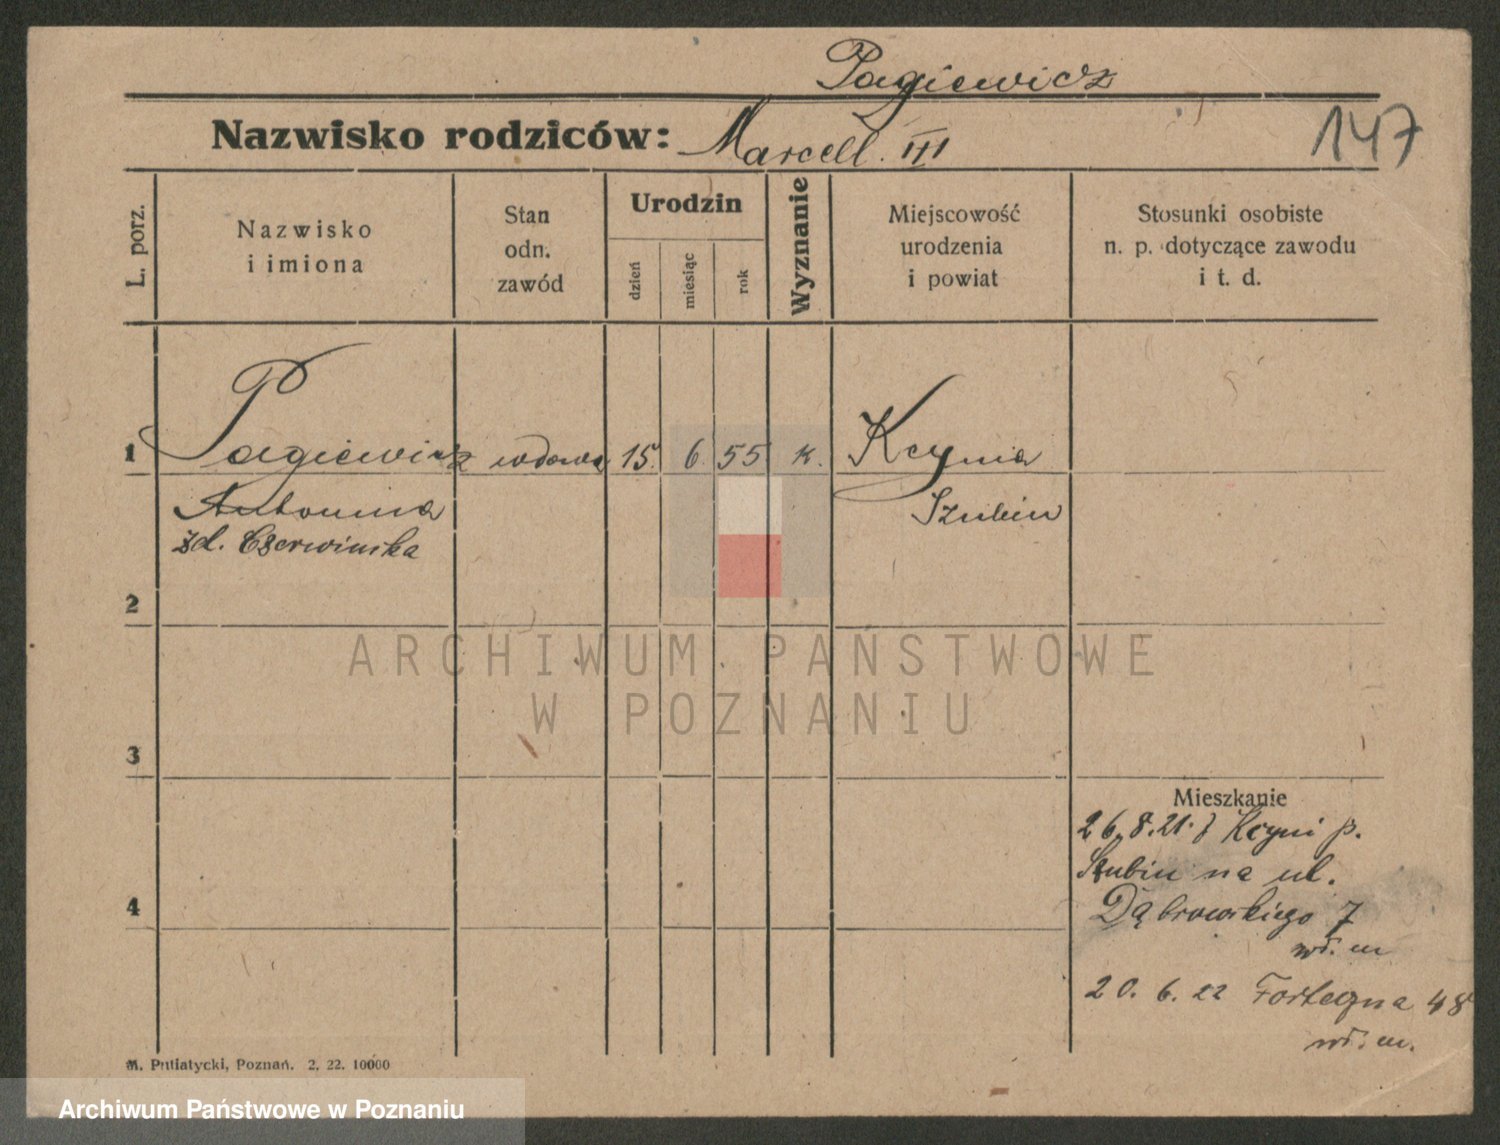 Pagiewicz
Nazwisko rodziców: Marcell. III
147
L. porz.
Nazwisko
i imiona
Stan
odn.
zawód
Urodzin
dzień
miesiąc
rok
Wyznanie
Miejscowość
urodzenia
i powiat
Stosunki osobiste
n. p. dotyczące zawodu
i t. d.
1 Pagiewicz wdowa 15. 6. 55 k. Kcynia
Antonina Szubin
zd. Czerwińska
2
3
4
Mieszkanie
26.8.21. z Kcyni p.
Szubin na ul.
Dąbrowskiego 7
wd. m
20. 6. 22 Forteczna 48
wd. m.
M. Putiatycki, Poznań. 2. 22. 10000
ARCHIWUM PAŃSTWOWE
W POZNANIU
Archiwum Państwowe w Poznaniu